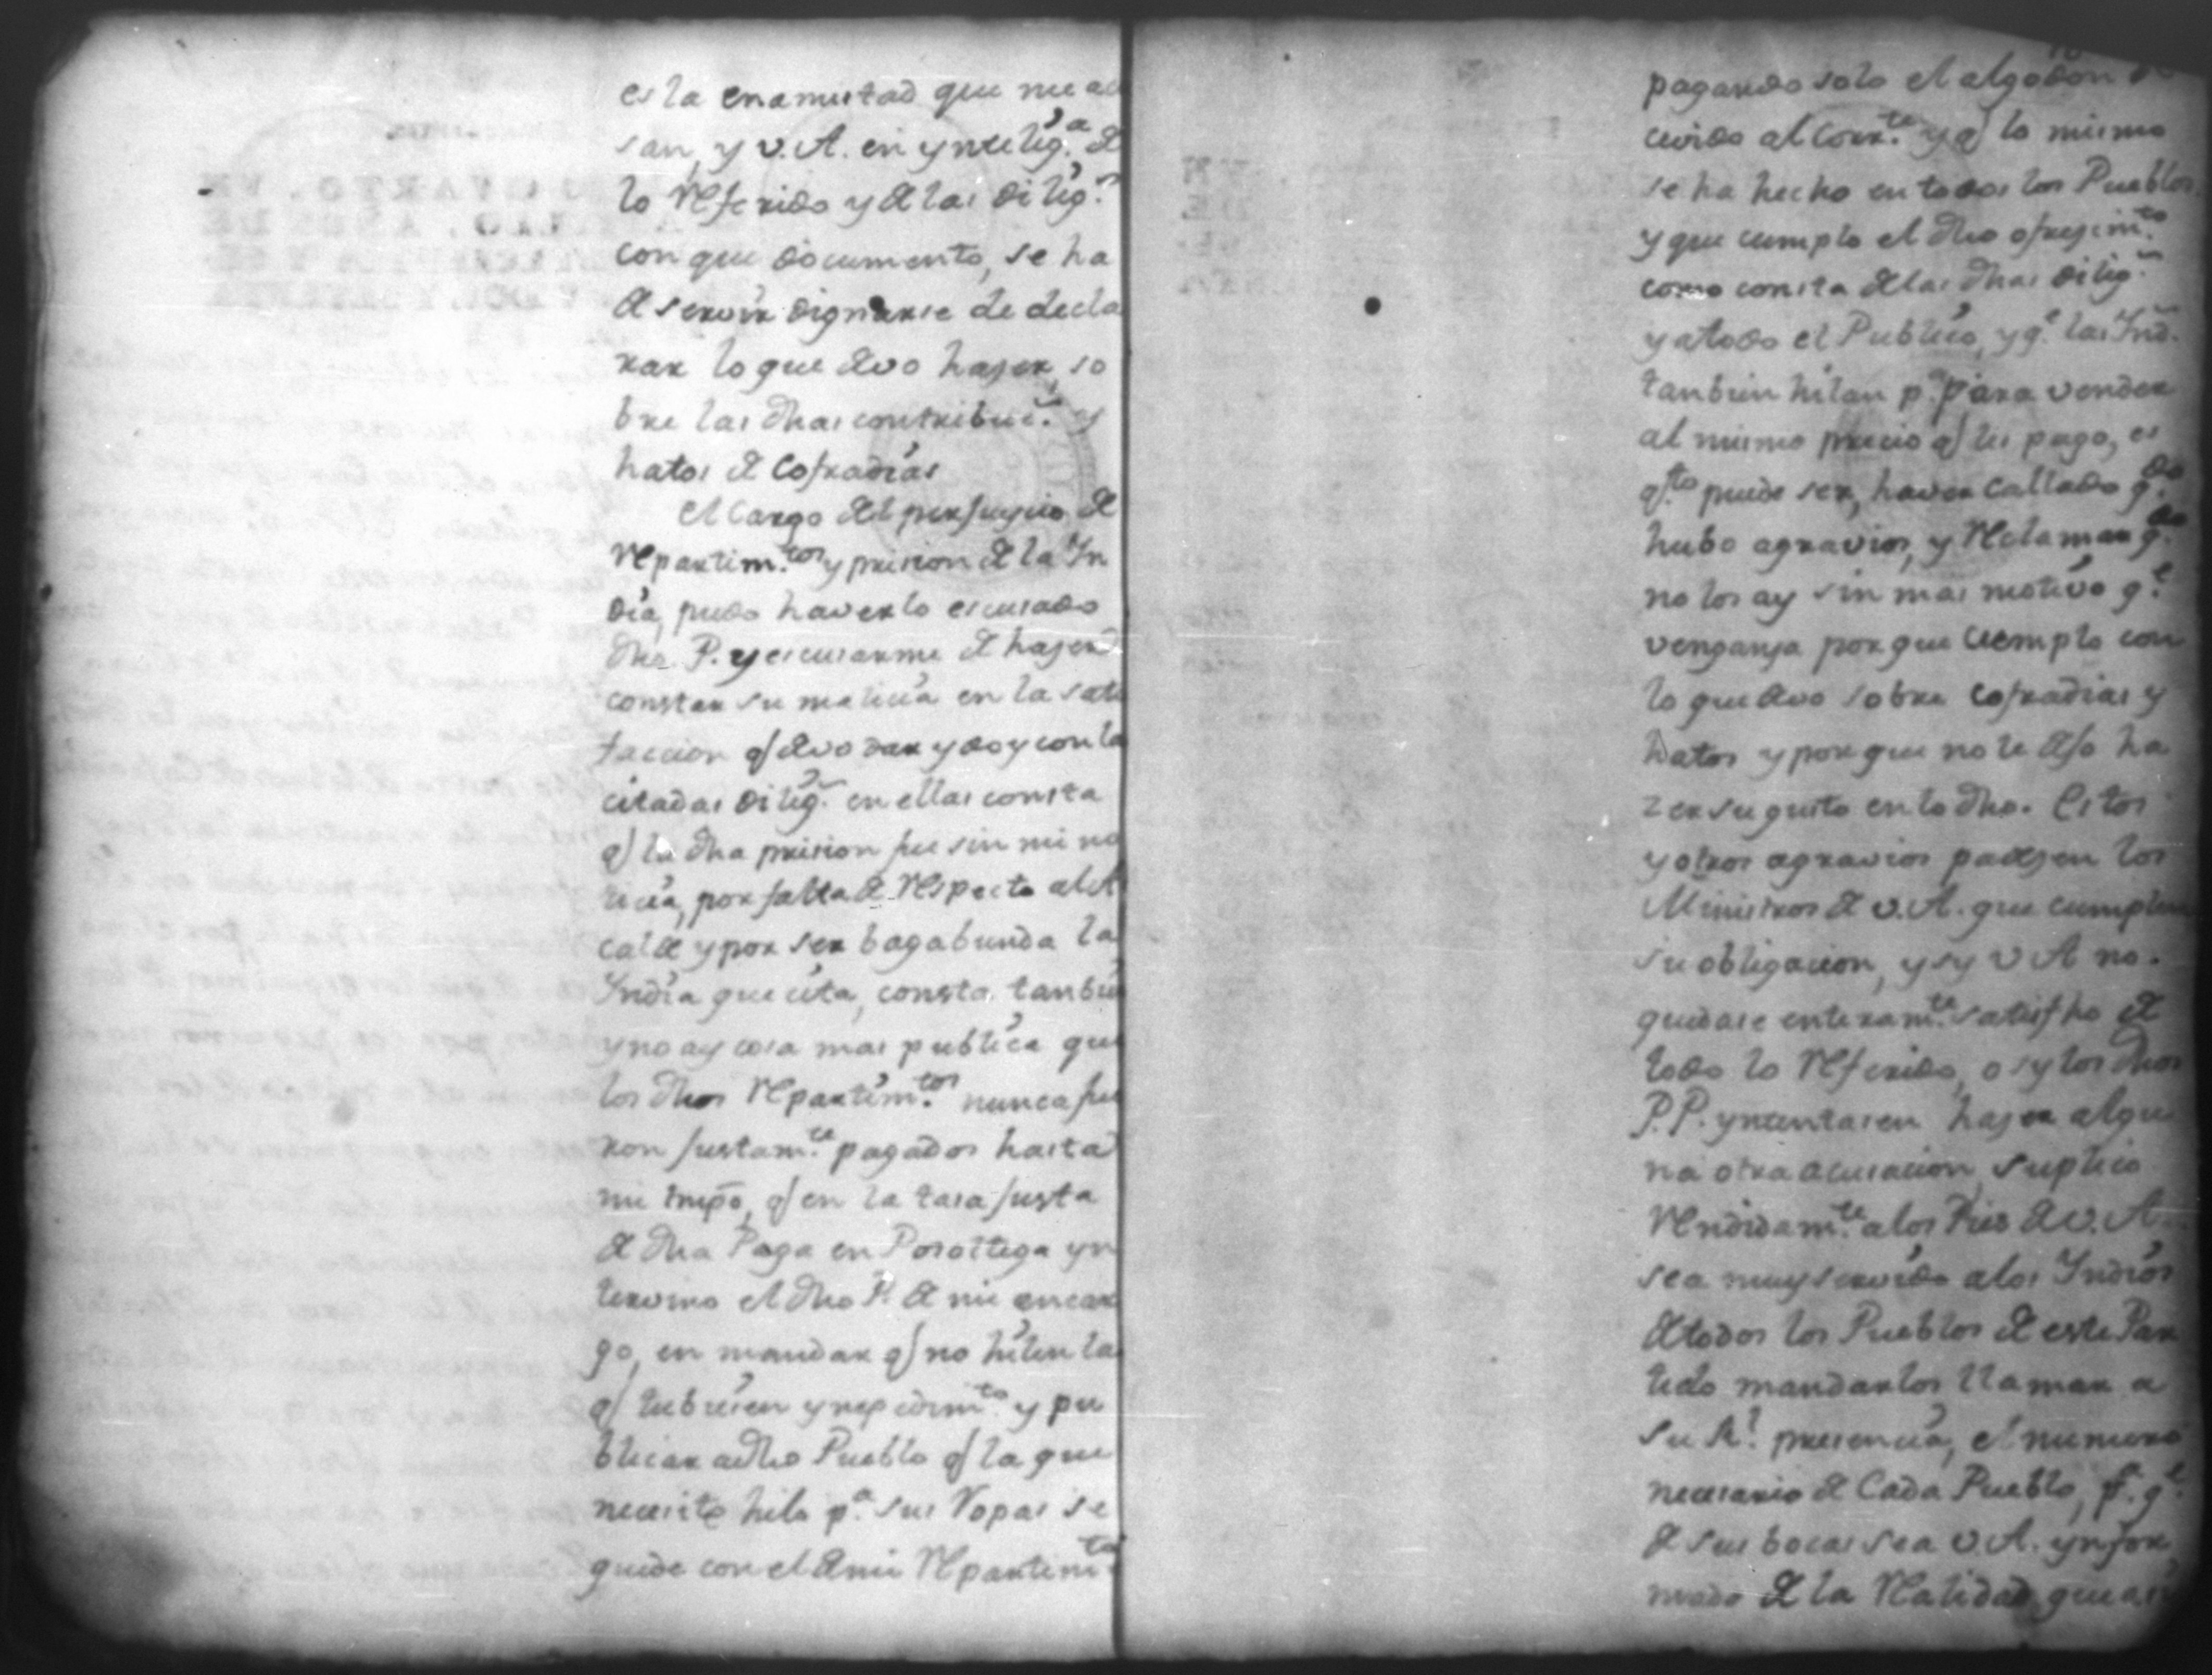 es la enamistad que me acu
san, y v. A. en yntelig.ª de
lo Referido y de las dilig.s
con que documento, se ha
de servir dignarse de decla
rar lo que devo hazer so
bre las dhas contribuc.s y
hatos de Cofradias
El Cargo del perjuycio de
Repartim.tos y prision de la Yn
dia, pudo haverlo escusado
dho P. y escusarme de hazer
constar su malicia en la satis
faccion q devo dar y doy con la
citadas dilig.s en ellas consta
q la dha prision fue sin mi no
ticia, por falta de Respecto al Al
calde y por ser bagabunda la
Yndia que cita, consta tanbien
y no ay cosa mas publica que
los dhos Repartim.tos nunca fue
ron justam.te pagados hasta
mi tmpo, q en la tasa justa
de dha Paga en Posoltega yn
tervino el dho P. de mi encar
go, en mandar q no hilen la
q tubiesen ynpedim.to y pu
blicar a dho Pueblo q la que
necesite hilo p.ª sus Ropas se
quede con el de mi Repartim.to
pagando solo el algodon
cuido al Corr.te y q lo mismo
se ha hecho en todos los Pueblos
y que cumplo el dho ofresim.to
como consta de las dhas dilig.s
y a todo el Publico, y q.e las Ynd.s
tanbien hilan p.ª para vender
al mismo precio q les pago, es
q.to puede ser, haver Callado q.do
hubo agravios, y Reclamar q.do
no los ay sin mas motivo q.e
venganza porque cumplo con
lo que devo sobre Cofradias y
hatos y porque no le dejo ha
zer su gusto en lo dho. Estos
y otros agravios padezen los
Ministros de v. A. que cumplen
su obligacion, y sy v A no.
quedase enteram.te satisfho de
todo lo Referido, o sy los dhos
P.P. yntentasen hazer algu
na otra acusacion, suplico
Rendidam.te a los Pies de v. A.
sea muy servido a los Yndios
de todos los Pueblos de este Par
tido mandarlos llamar a
su R.l presencia, el numero
necesario de Cada Pueblo, p.ª q.e
de sus bocas sea v. A. ynfor
mado de la Realidad, que asi